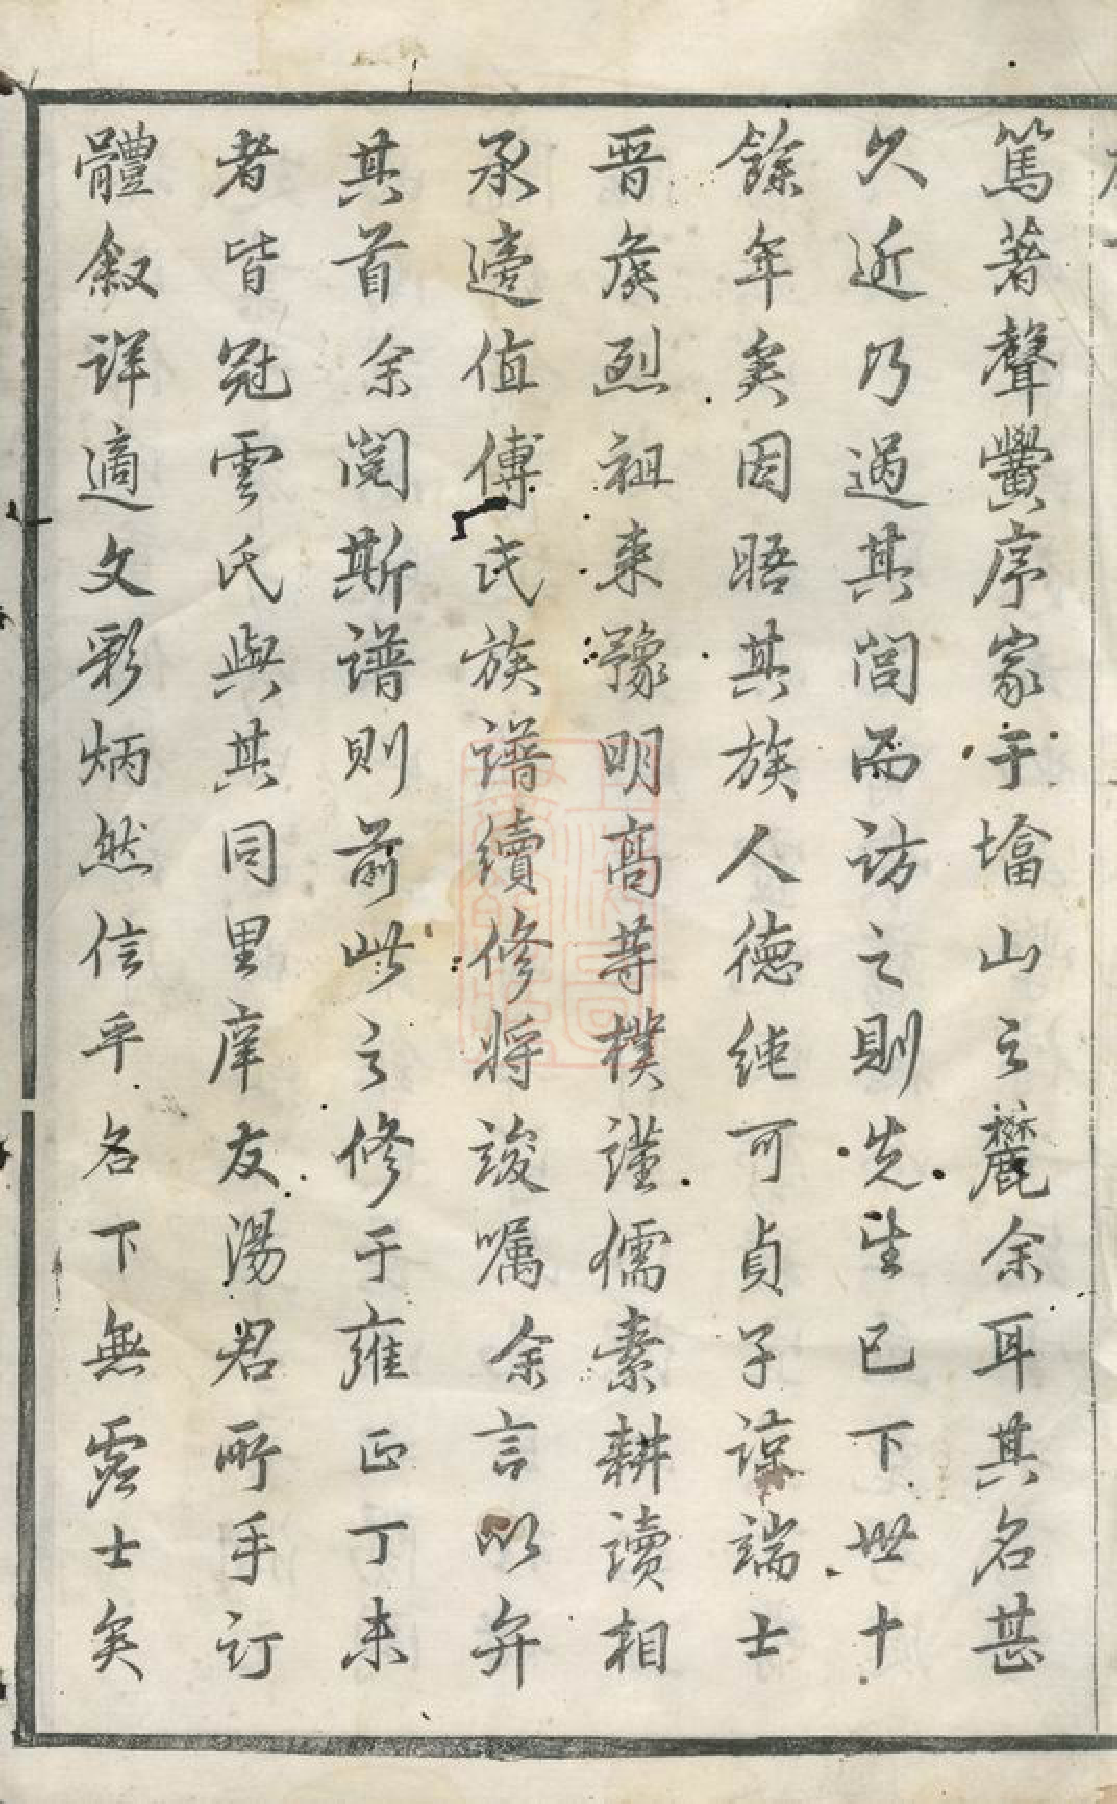 篤著聲黌序家于墖山之麓余耳其名甚
久近乃過其閭而訪之則先生已下世十
餘年矣因晤其族人德純可貞子諒端士
晋侯烈祖來豫明高等樸謹儒素耕讀相
承適值傅氏族譜續修將竣嘱余言以弁
其首余閱斯譜則前此之修于雍正丁未
者皆冠雲氏與其同里庠友湯君所手訂
體叙詳適文彩炳然信乎名下無虛士矣